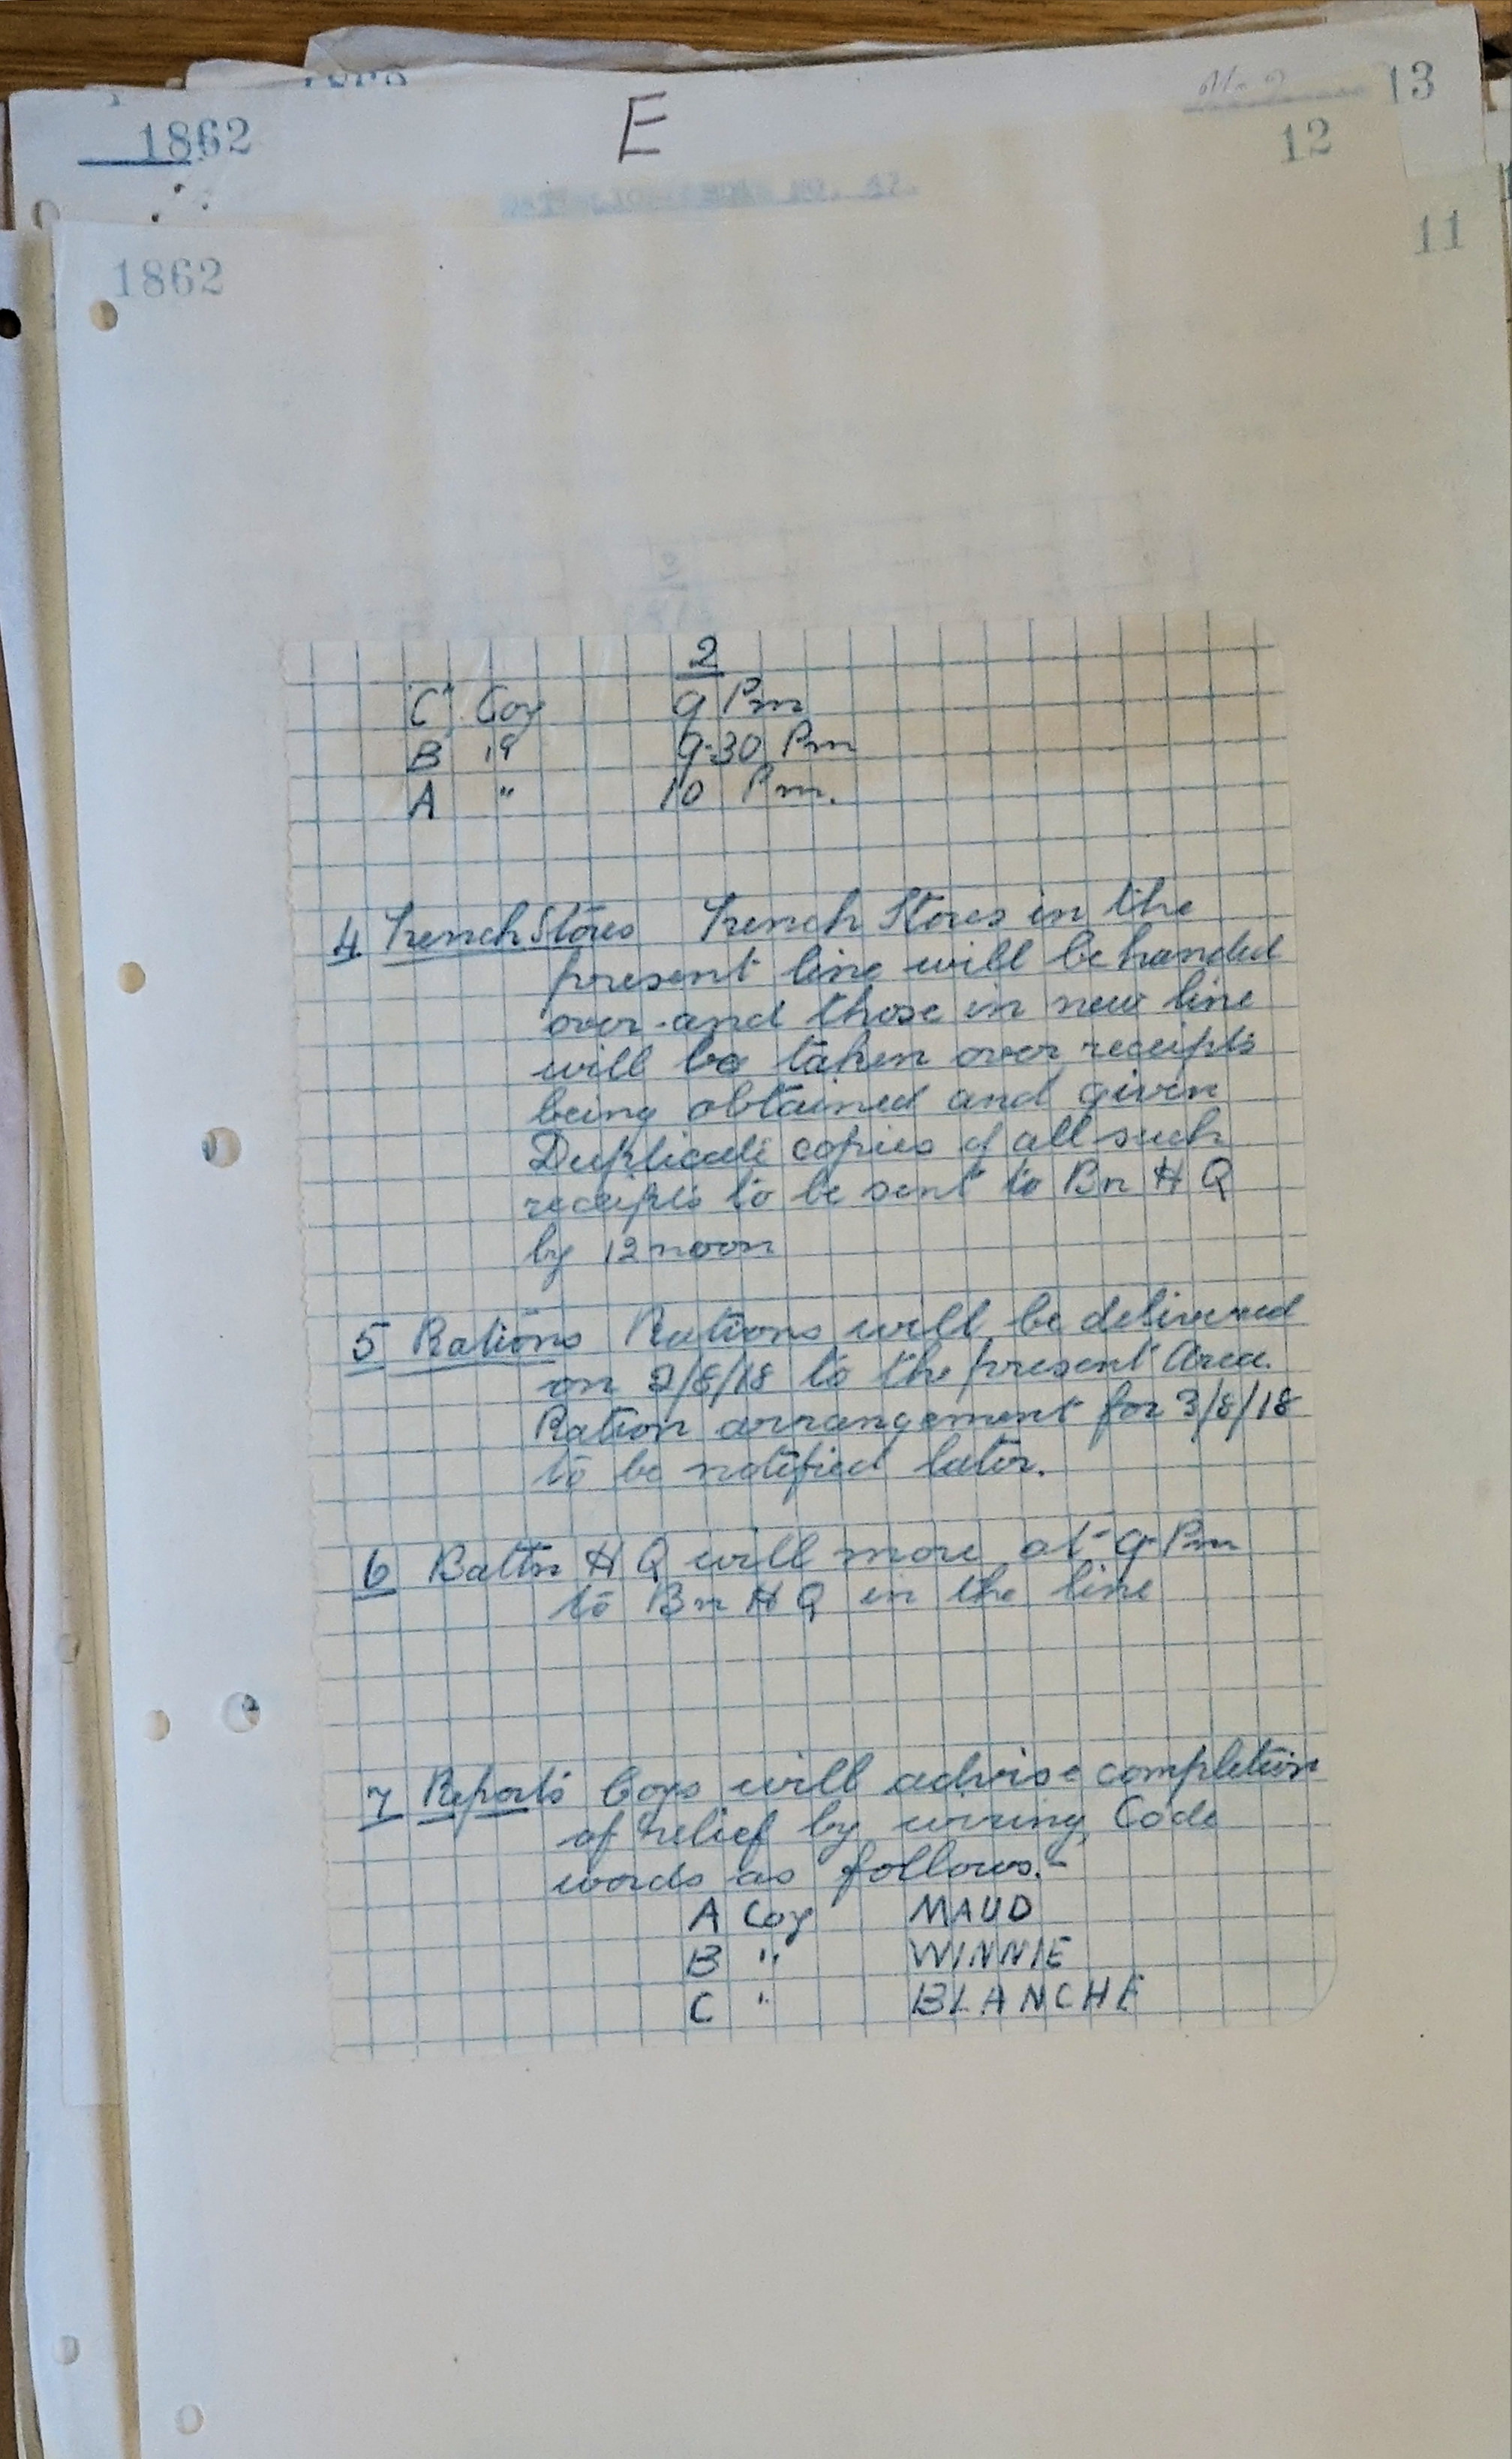 13
1862
E
12
1862
11
2
"C" Coy 9 Pm
B " 9.30 Pm
A " 10 Pm.
4 Trench Stores Trench Stores in the
present line will be handed
over and those in new line
will be taken over receipts
being obtained and given
Duplicate copies of all such
receipts to be sent to Bn H Q
by 12 noon
5 Rations Rations will be delivered
on 2/8/18 to the present Area.
Ration arrangement for 3/8/18
to be notified later.
6 Battn H Q will move at 9 Pm
to Bn H Q in the line
7 Reports Coys will advise completion
of relief by wiring Code
words as follows.-
A Coy MAUD
B " WINNIE
C " BLANCHE